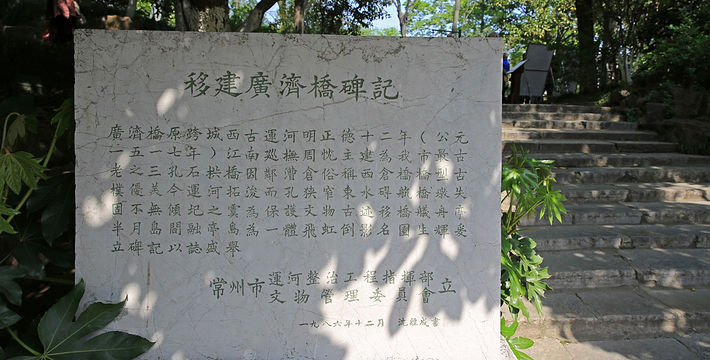 移建廣濟橋碑記
廣濟橋原跨城西古運河明正德十二年（公元
一五一七年）江南巡撫周忱主建為我市最古
老之三孔石拱橋因鄰漕倉俗稱西倉橋橋型古
樸優美今運河拓浚而孔狹窄束水礙航橋墩失
固不無傾圮之虞為保護文物古迹移橋艤舟亭
半月島間融亭島為一體飛虹倒影名園生輝爰
立碑記以誌盛舉
常州市運河整治工程指揮部
文物管理委員會立
一九八六年十二月 沈 成書